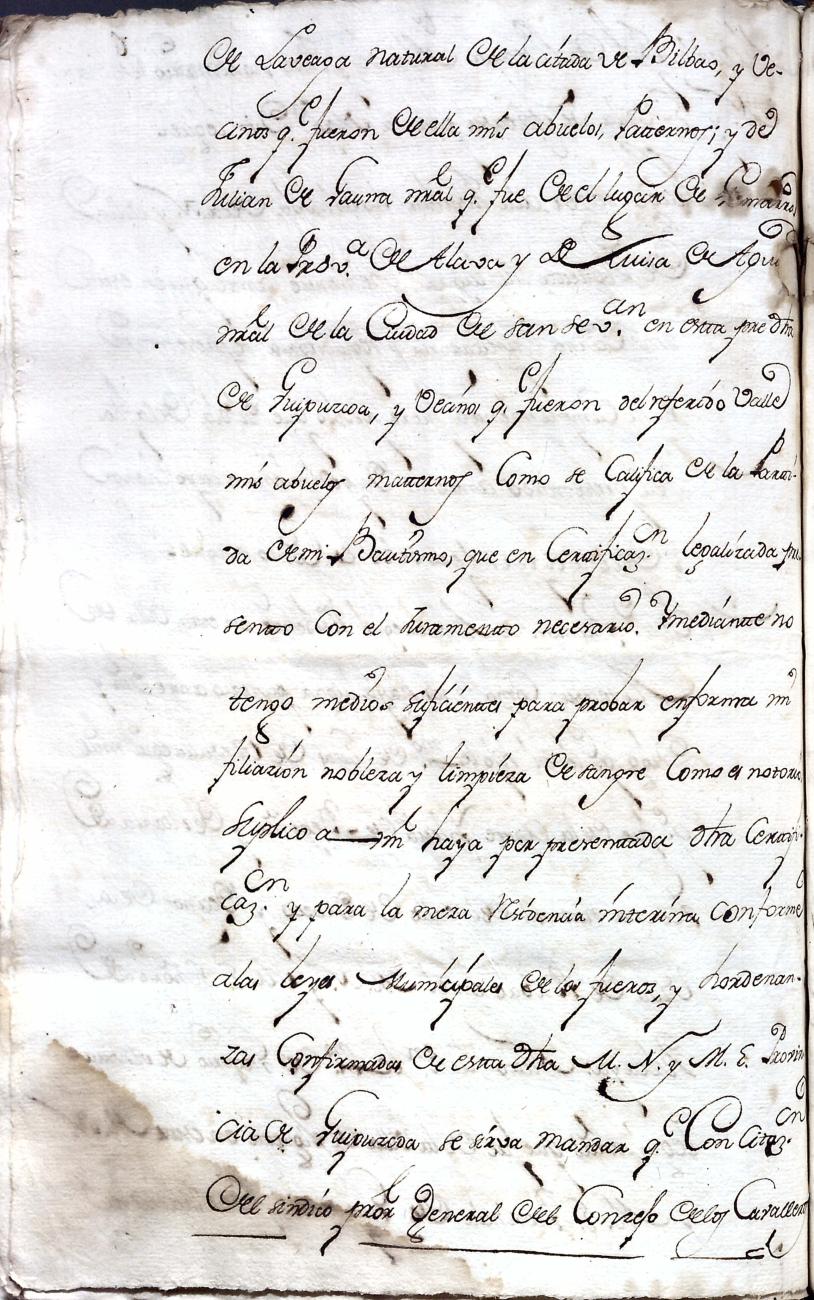 de Laveaga natural de la citada v.ª Bilbao, y ve-
cinos q.e fueron de ella mis abuelos, Patternos; y de
Julian de Gauna nral q.e fue de el lugar de
en la Prov.a de Alava y de Luisa de
nral de la Ciudad de San Sev.an en esta pre dha
de Guipuzcoa, y vecinos q.e fueron del referido Valle
mis abuelos matternos Como se Califica de la Parti-
da de mi Bautismo, que en Certificaz.on legalizada pre
sentto Con el Juramentto necesario. Y mediantte no
tengo medios suficienttes para probar en forma mi
filiazion nobleza y limpieza de sangre Como es notorio
Suplico a Vm haya por presenttada dha Certifi-
caz.on y para la mera residencia interina conforme
a las leyes Municipales de los fueros, y hordenan-
zas Confirmadas de estta dha M. N. y M. L. Provin
cia de Guipuzcoa se sirva mandar q.e Con Citaz.on
del sindico pror General del Conzejo de los Cavalleros